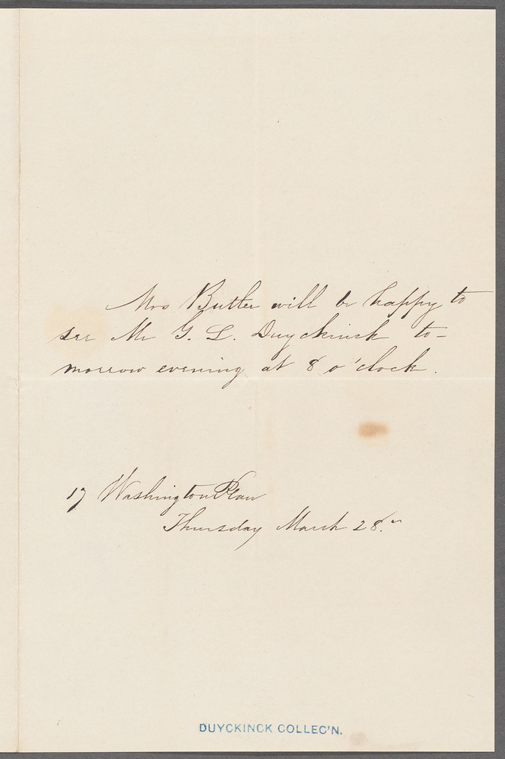 Mrs Butler will be happy to
see Mr G. L. Duyckinck to-
morrow evening at 8 o'clock.
17 Washington Place
Thursday March 28th
DUYCKINCK COLLEC'N.